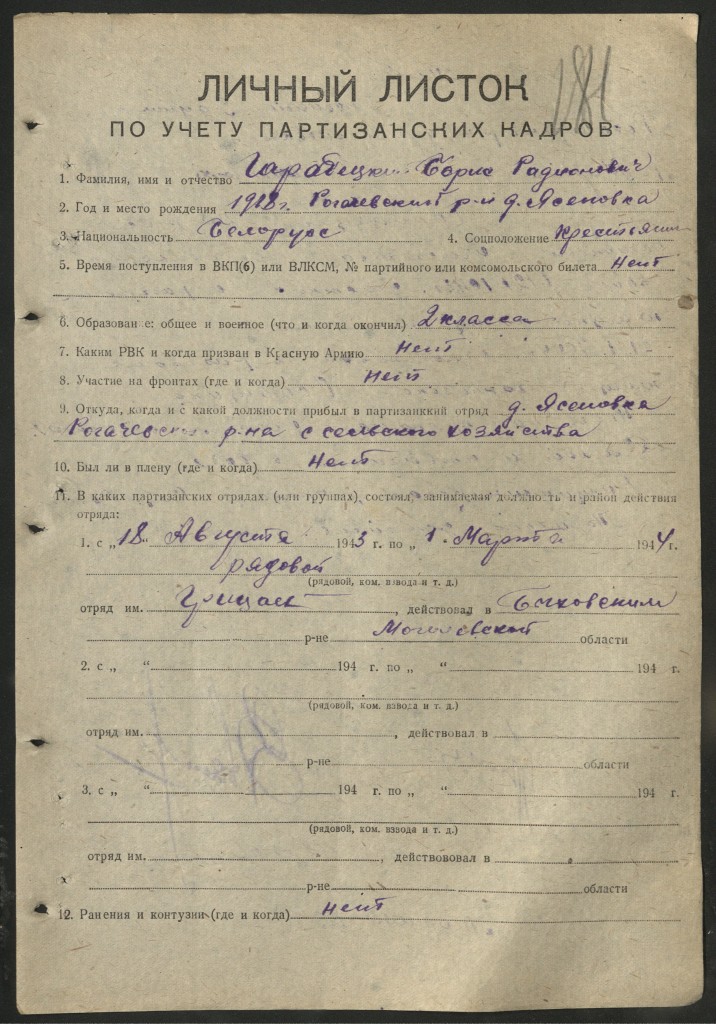 181
ЛИЧНЫЙ ЛИСТОК
ПО УЧЕТУ ПАРТИЗАНСКИХ КАДРОВ
1. Фамилия, имя и отчество Борис Радионович
2. Год и место рождения 1918 г. Рогачевский р-н д. Ясеновка
3. Национальность Белорус 4. Соцположение Крестьянин
5. Время поступления в ВКП(б) или ВЛКСМ, № партийного или комсомольского билета Нет
6. Образован е: общее и военное (что и когда окончил) 2 класса
7. Каким РВК и когда призван в Красную Армию Нет
8. Участие на фронтах (где и когда) Нет
9. Откуда, когда и с какой должности прибыл в партизанкий отряд д. Ясеновка
Рогачевский р-на с сельского хозяйства
10. Был ли в плену (где и когда) Нет
11. В каких партизанских отрядах (или группах) состоял, занимаемая должность и район действия
отряда:
1. с „18“ Августа 1943 г. по „1. Марта 1944 г.
рядовой
(рядовой, ком. взвода и т. д.)
отряд им. , действовал в Быховским
р-не Могилевской области
2. с „ “ 194 г. по „ “ 194 г.
(рядовой, ком. взвода и т. д.)
отряд им. , действовал в
р-не области
3. с „ “ 194 г. по „ “ 194 г.
(рядовой, ком. взвода и т. д.)
отряд им. , действововал в
р-не области
12. Ранения и контузии (где и когда) Нет